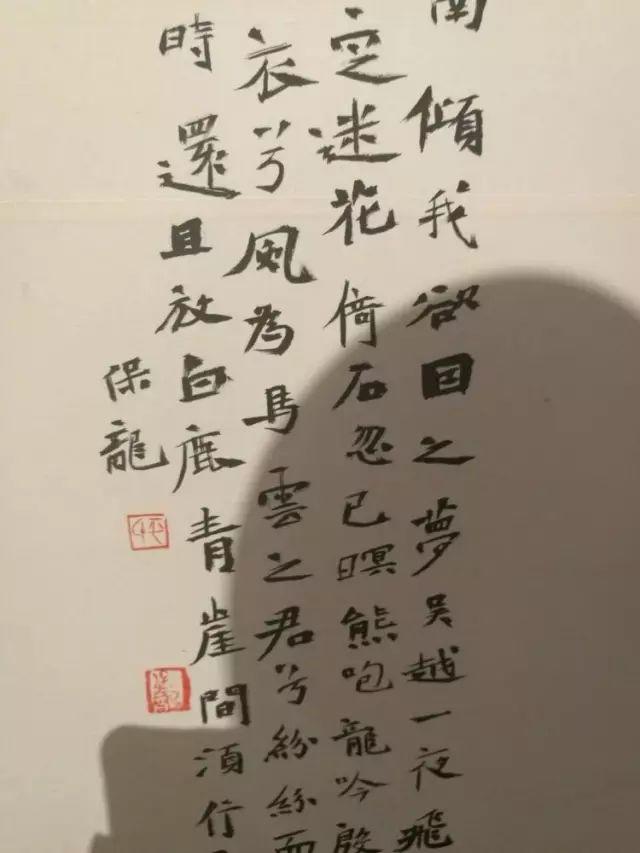 南傾我欲因之夢吴越一夜飛
定迷花倚石忽已暝熊咆龍吟殷
衣兮風為馬雲之君兮紛紛而
時還且放白鹿青崖間須行
保龍